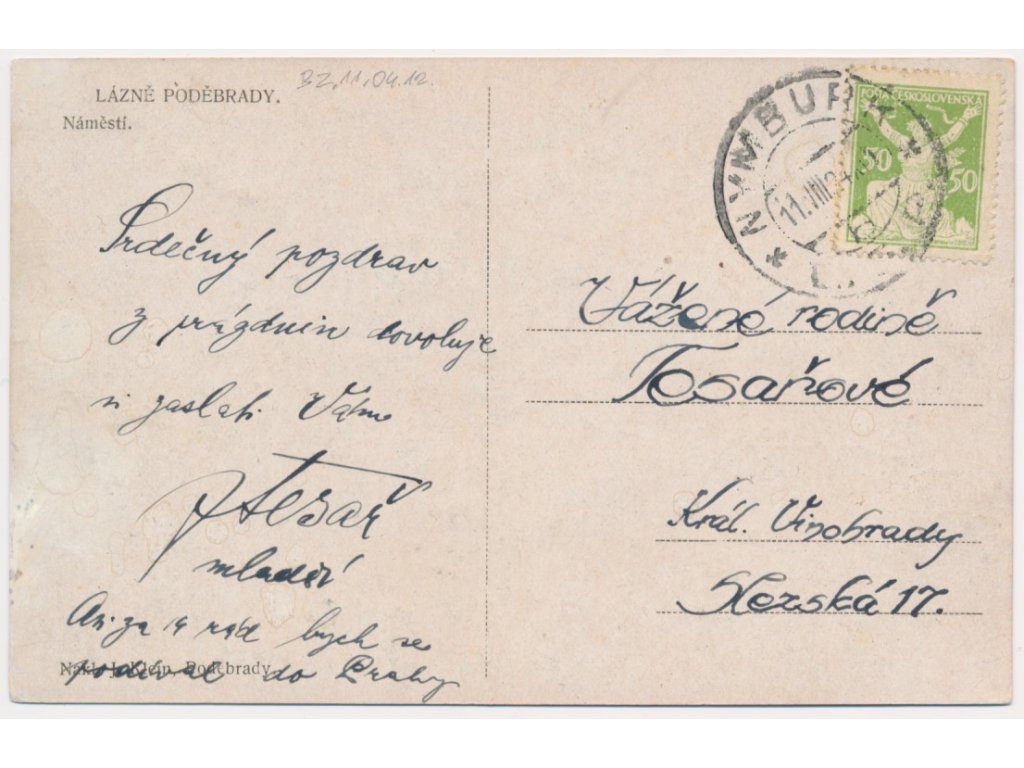 BZ, 11,04.12.
LÁZNĚ PODĚBRADY.
Náměstí.
Srdečný pozdrav
z prázdnin dovoluje
si zaslati Vám
Tesař
mladší
rád bych se
podíval do Prahy
Nákl. J. Klein, Poděbrady.
NYMBURK
POŠTA ČESKOSLOVENSKÁ
50 50
Vážené rodině
Tesařové
Král. Vinohrady
Slezská 17.